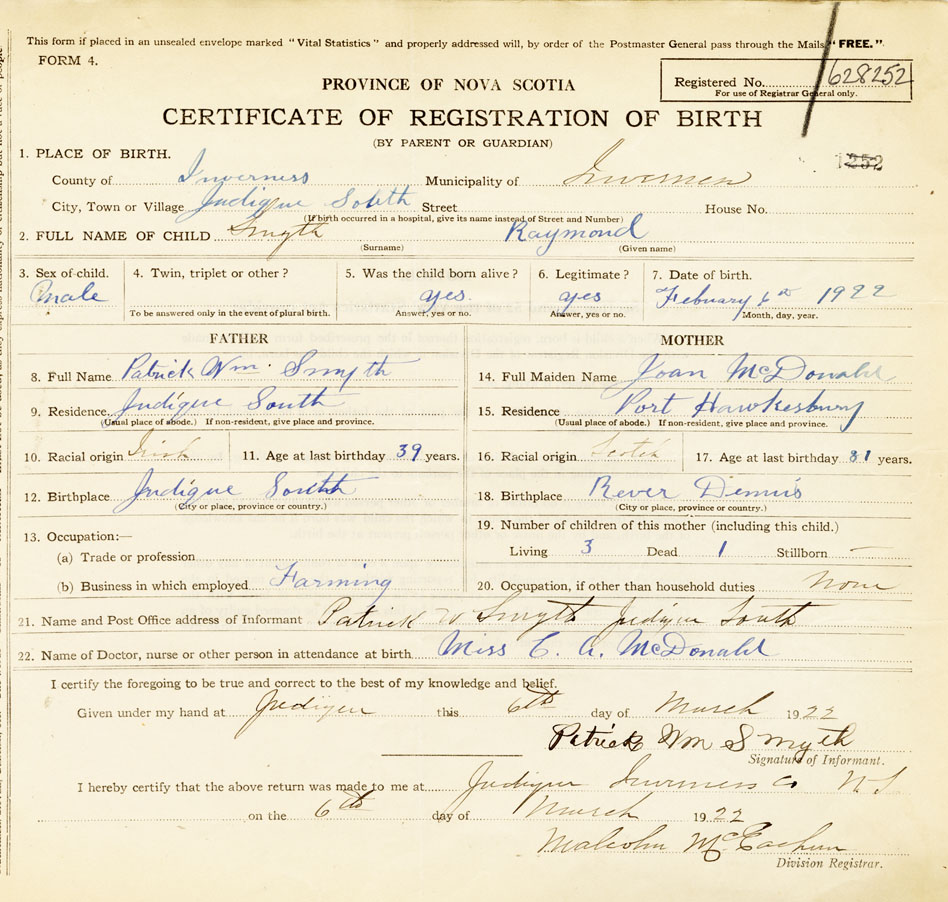 This form if placed in an unsealed envelope marked "Vital Statistics" and properly addressed will, by order of the Postmaster General pass through the Mails "FREE."
FORM 4.
PROVINCE OF NOVA SCOTIA
Registered No. 628252
For use of Registrar General only.
CERTIFICATE OF REGISTRATION OF BIRTH
(BY PARENT OR GUARDIAN)
1252
1. PLACE OF BIRTH.
County of Inverness Municipality of Inverness
City, Town or Village Judique South Street House No.
(If birth occurred in a hospital, give its name instead of Street and Number)
2. FULL NAME OF CHILD Smyth Raymond
(Surname) (Given name)
3. Sex of child. 4. Twin, triplet or other? 5. Was the child born alive? 6. Legitimate? 7. Date of birth.
Male yes. yes Febuary 6th 1922
To be answered only in the event of plural birth. Answer, yes or no. Answer, yes or no. Month, day, year.
FATHER MOTHER
8. Full Name Patrick Wm. Smyth 14. Full Maiden Name Joan McDonald
9. Residence. Judique South 15. Residence Port Hawkesbury
(Usual place of abode.) If non-resident, give place and province. (Usual place of abode.) If non-resident, give place and province.
10. Racial origin Irish 11. Age at last birthday 39 years. 16. Racial origin Scotch 17. Age at last birthday 31 years.
12. Birthplace Judique South 18. Birthplace Rever Dennis
(City or place, province or country.) (City or place, province or country.)
13. Occupation:— 19. Number of children of this mother (including this child.)
(a) Trade or profession Living 3 Dead 1 Stillborn —
(b) Business in which employed Farming 20. Occupation, if other than household duties None
21. Name and Post Office address of Informant Patrick W Smyth Judique South
22. Name of Doctor, nurse or other person in attendance at birth Miss C. A. McDonald
I certify the foregoing to be true and correct to the best of my knowledge and belief.
Given under my hand at Judique this 6th day of March 1922
Patrick Wm Smyth
Signature of Informant.
I hereby certify that the above return was made to me at Judique Inverness Co N.S
on the 6th day of March 1922
Malcolm McEachern
Division Registrar.